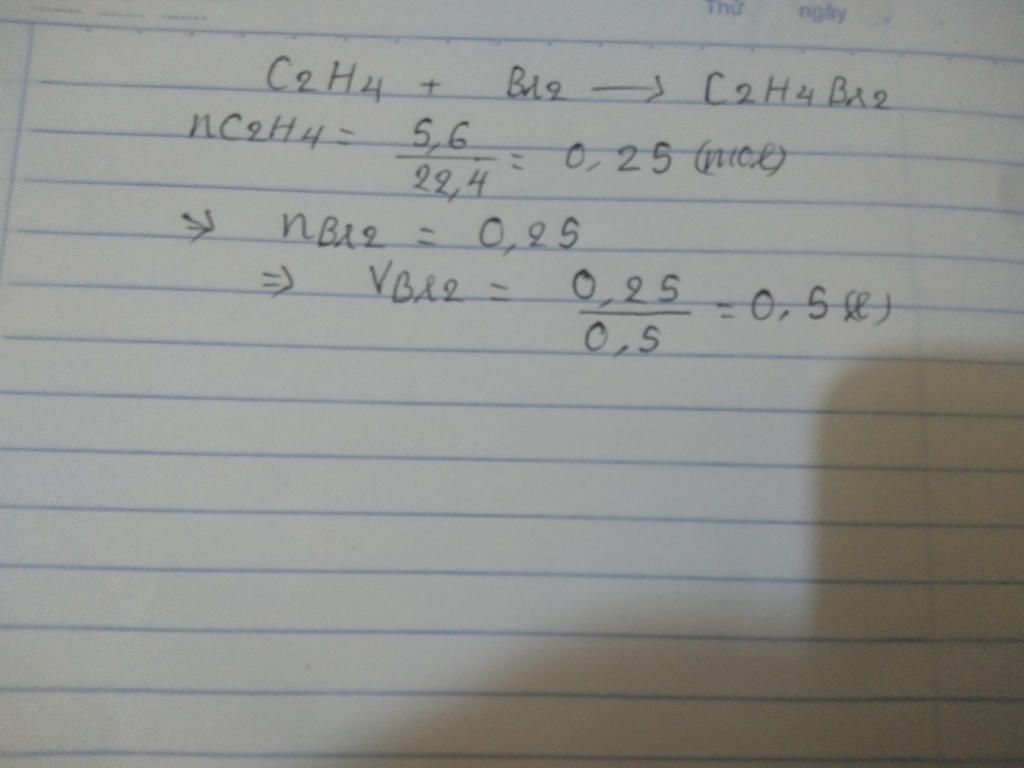 Thứ ngày
C2H4 + Br2 → C2H4Br2
nC2H4 = 5,6/22,4 = 0,25 (mol)
=> nBr2 = 0,25
=> VBr2 = 0,25/0,5 = 0,5(l)